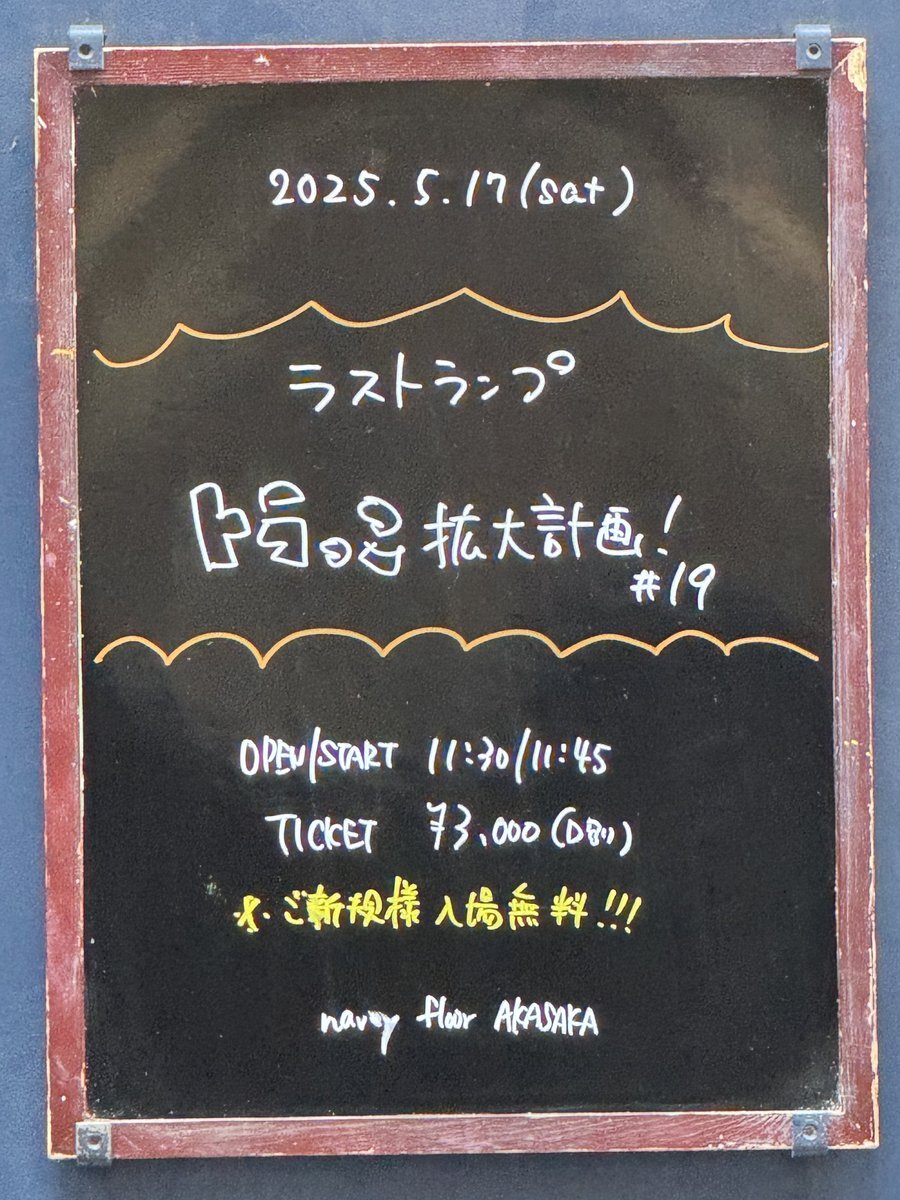 2025.5.17(sat)
ラストランプ
拡大計画!
#19
OPEN/START 11:30/11:45
TICKET ¥3,000(D別)
※ご新規様入場無料!!!
navey floor AKASAKA